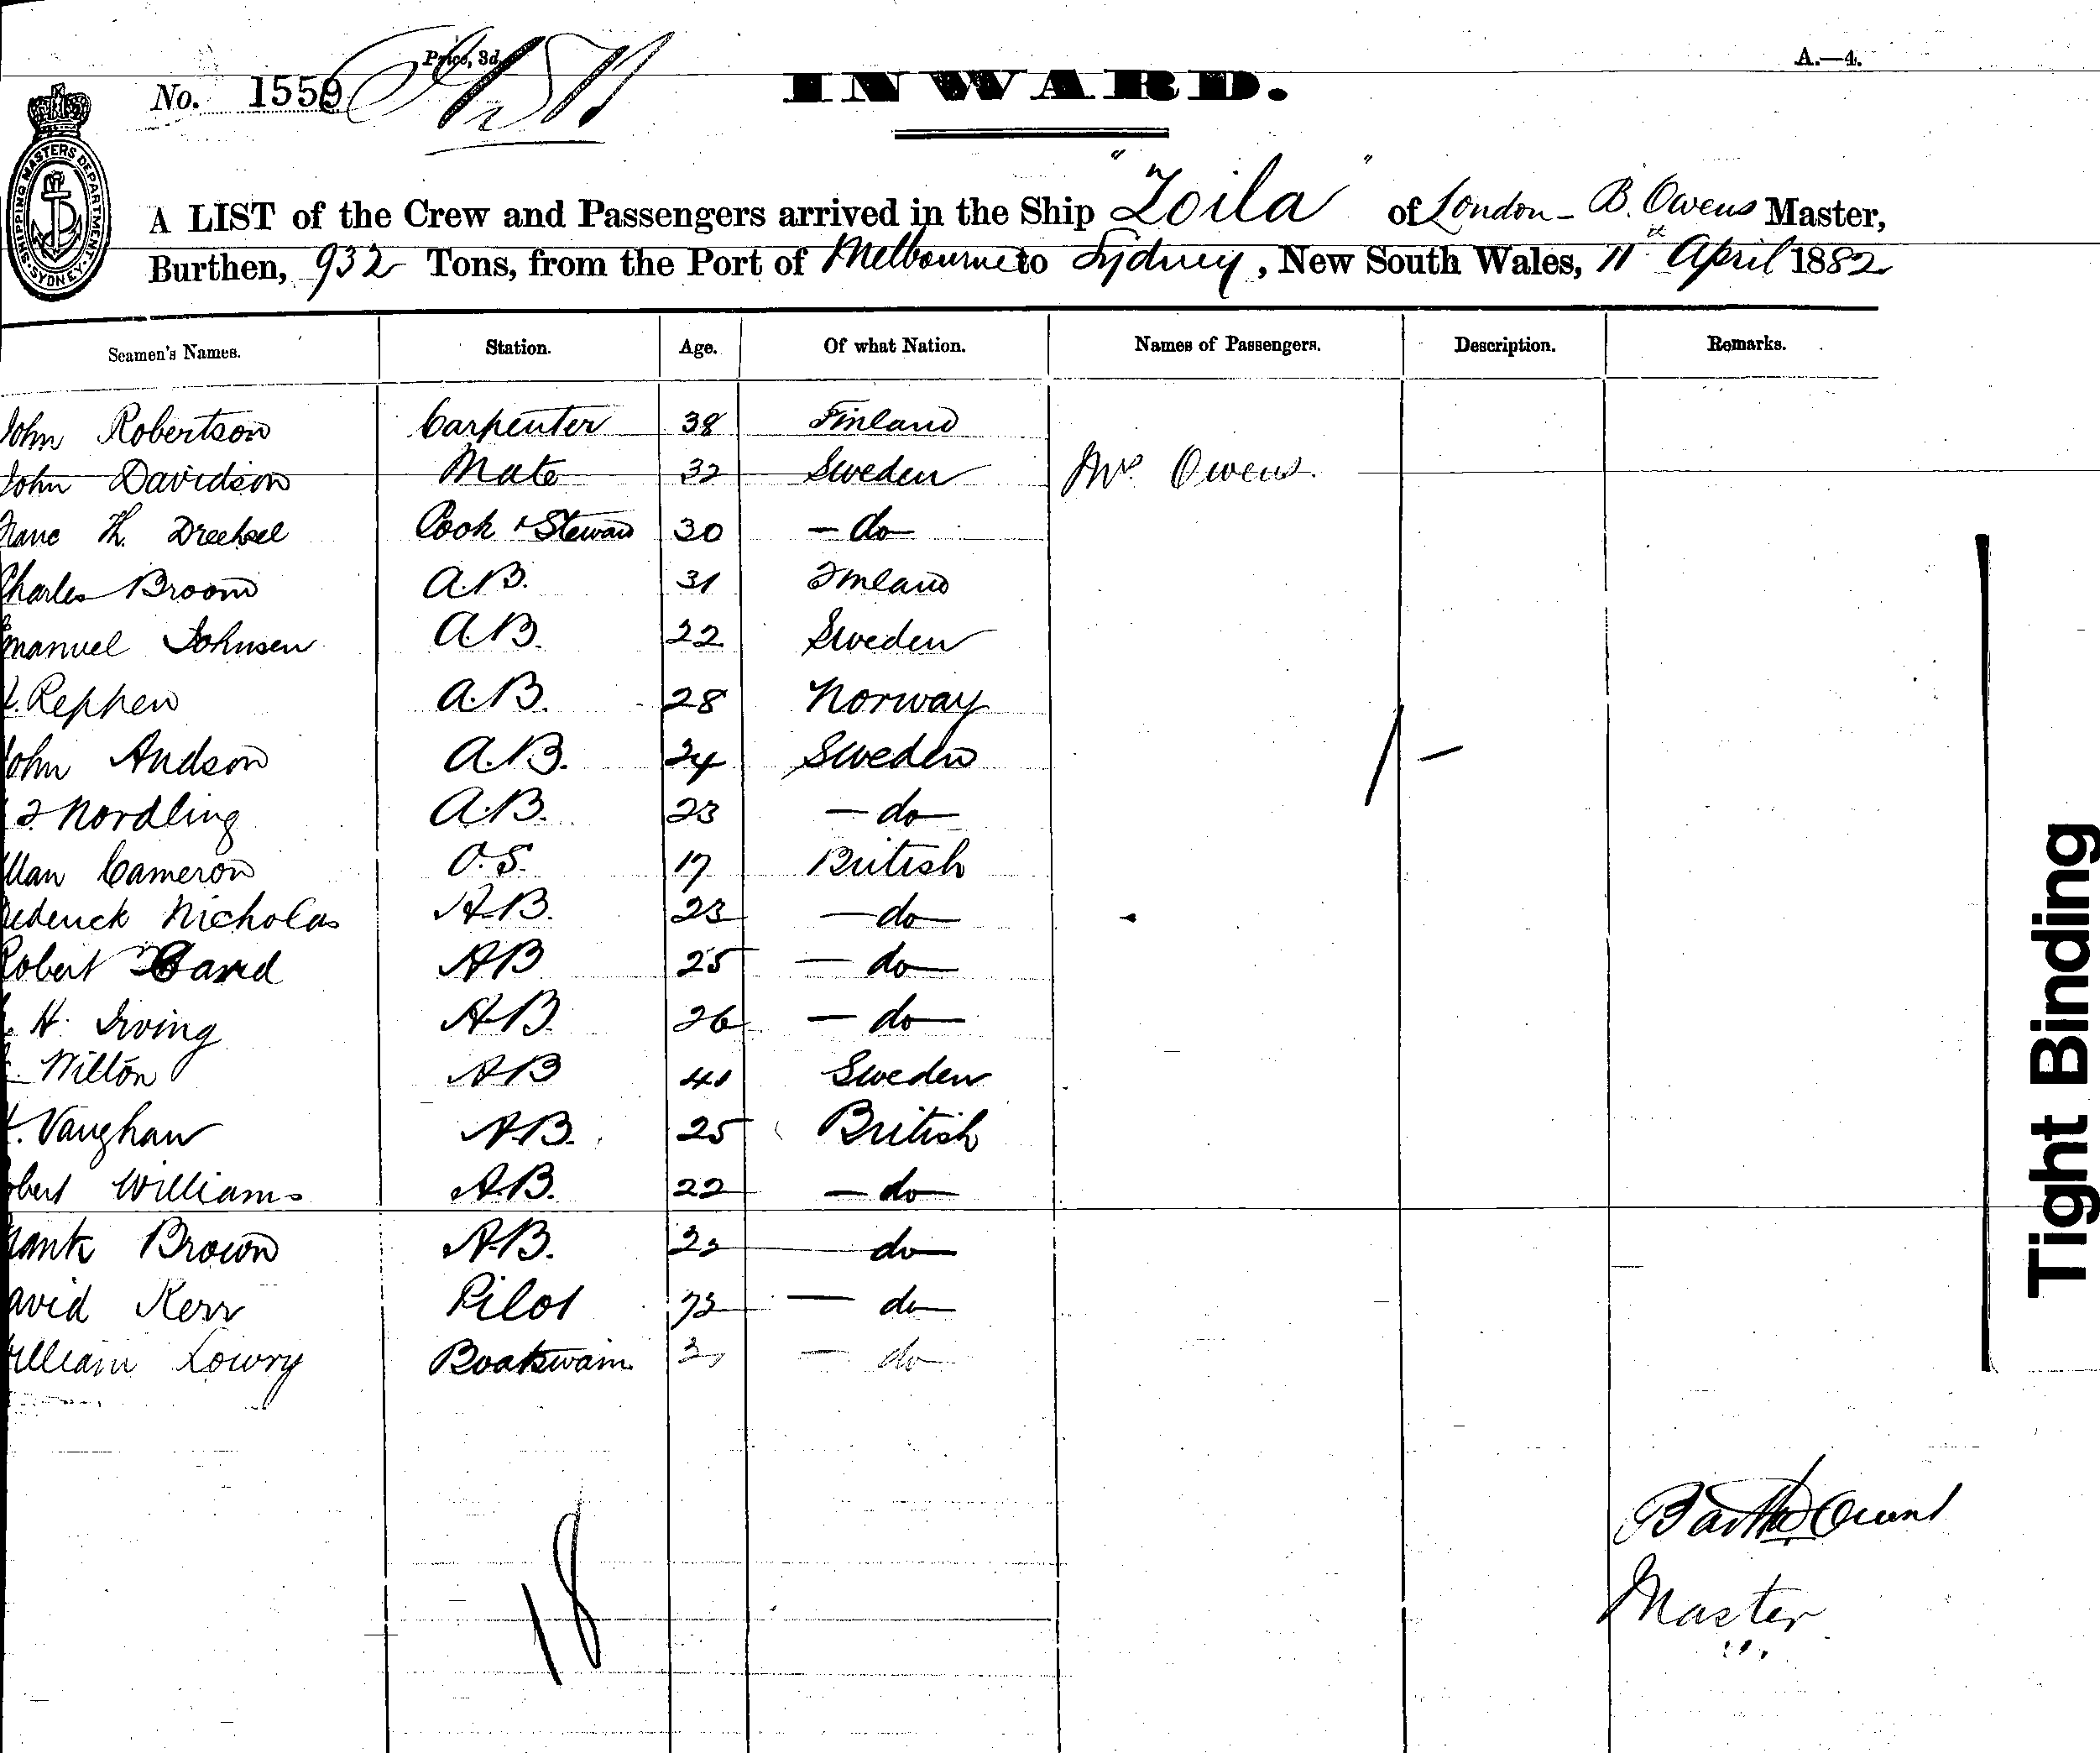 Price, 3d.
A.—4.
No. 1559
INWARD.
SHIPPING MASTERS DEPARTMENT. SYDNEY.
A LIST of the Crew and Passengers arrived in the Ship "Zoila" of London - B. Owens Master,
Burthen, 932 Tons, from the Port of Melbourne to Sydney, New South Wales, 11th April 1882
Seamen's Names. Station. Age. Of what Nation. Names of Passengers. Description. Remarks.
John Robertson Carpenter 38 Finland
John Davidson Mate 32 Sweden Mrs Owens.
Th. Drechsel Cook & Steward 30 - do
Charles Broom A.B. 31 Finland
manuel Johnsen A.B. 22 Sweden
Rephen A.B. 28 Norway
John Andson A.B. 24 Sweden
Nordling A.B. 23 - do
llan Cameron O.S. 17 British
ederick Nicholas A.B. 23 - do
Robert Card AB 25 - do
H. Irving A.B. 26 - do
Wilton AB 41 Sweden
Vaughan A.B. 25 British
obert Williams A.B. 22 - do
rank Brown A.B. 22 do
avid Kerr Pilot - do
William Lowry Boatswain - do
1 -
18
Owens
Master
Tight Binding